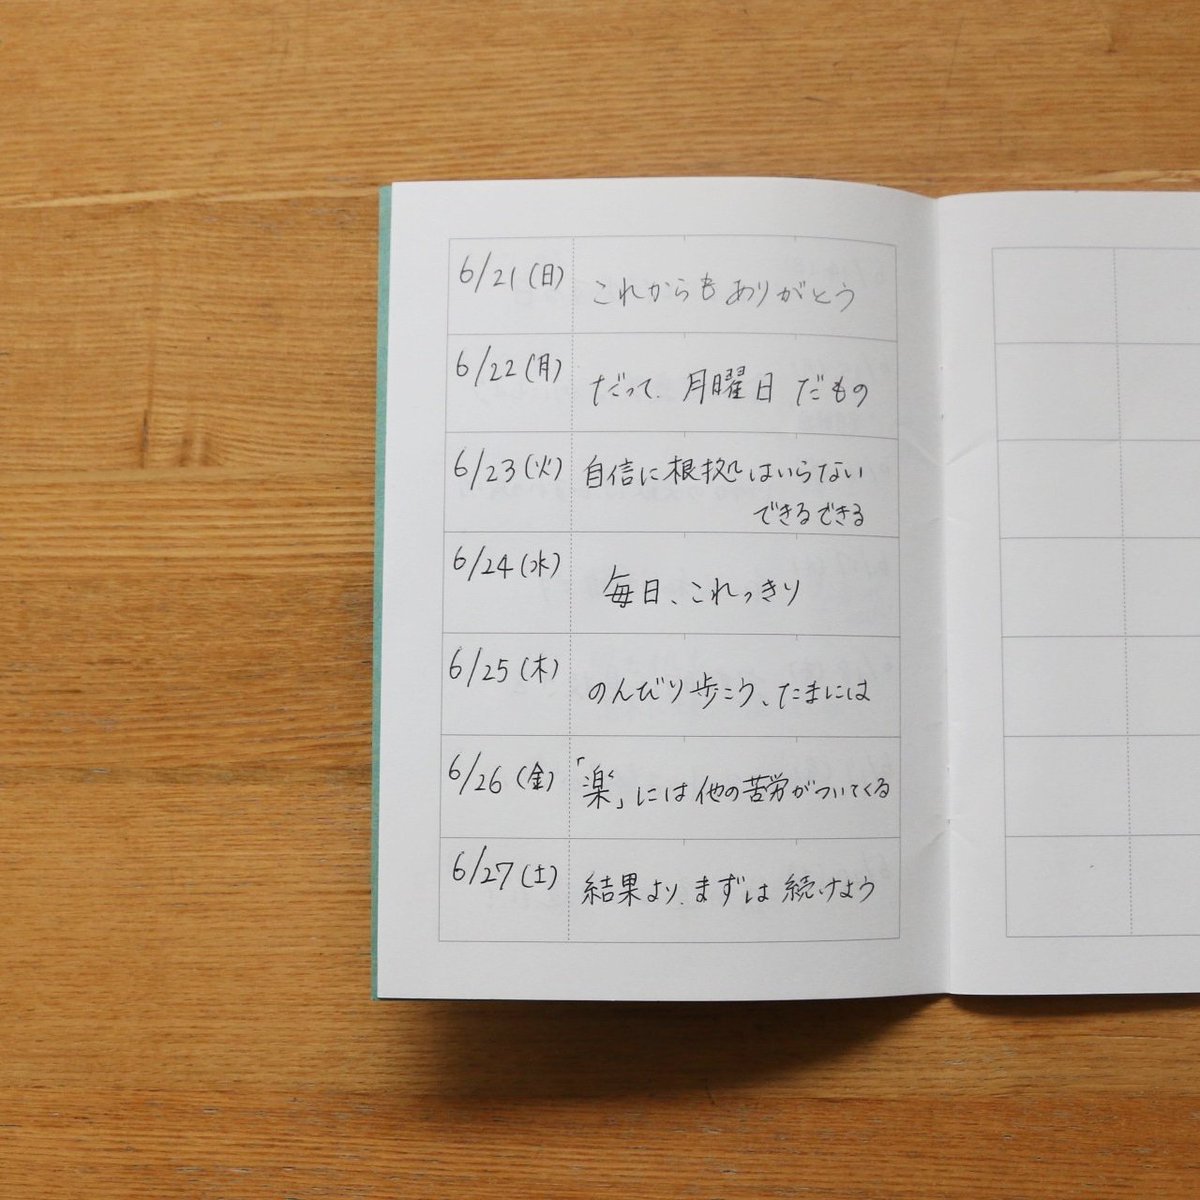 6/21(日) これからもありがとう
6/22(月) だって、月曜日だもの
6/23(火) 自信に根拠はいらない
できるできる
6/24(水) 毎日、これっきり
6/25(木) のんびり歩こう、たまには
6/26(金) 「楽」には他の苦労がついてくる
6/27(土) 結果より、まずは続けよう